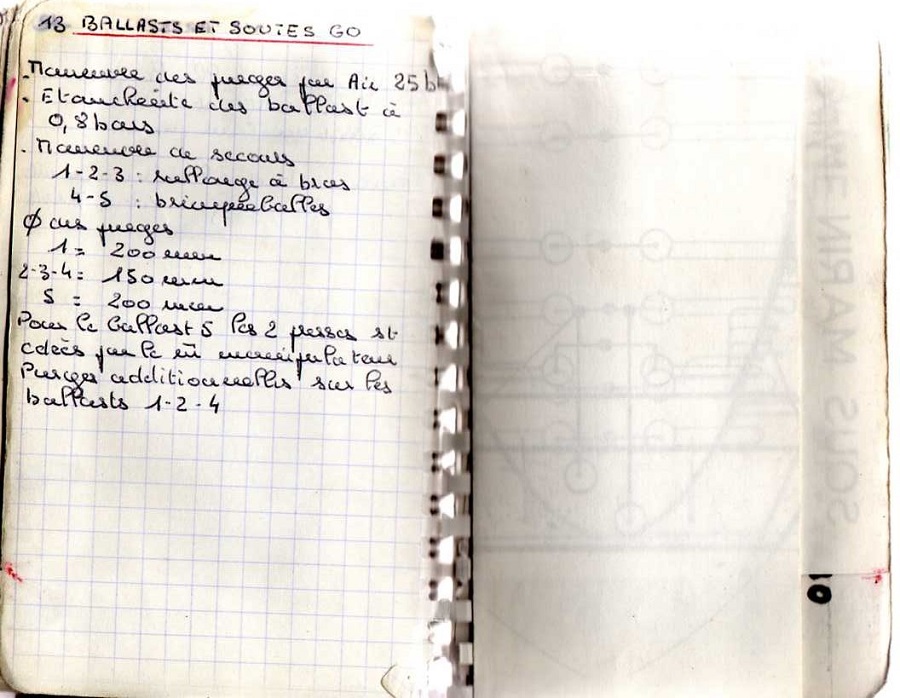 13 BALLASTS ET SOUTES GO
- Manoeuvre des purges par Air 25b
- Etancheité des ballast à
0,8 bars
- Manoeuvre de secours
1-2-3 : rallonge à bras
4-5 : brinqueballes
Ø des purges
1 = 200 mm
2-3-4 = 150 mm
5 = 200 mm
Pour le ballast 5 les 2 purges st
cdées par le m̂ manipulateur
Purges additionnelles sur les
ballasts 1-2-4
SOUS MARIN
10